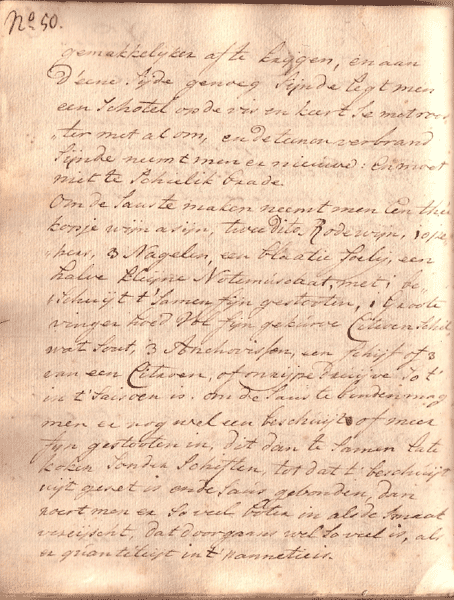 No 50.
gemakkelijker af te krijgen, en aan
D'eene Zijde genoeg Sijnde legt men
een Schotel op de vis en keert Se met roos
ter met al om, en de turven verbrand
Sijnde neemt men er nieuwe: En moet
niet te Schielik brade.
Om de Sause te maken neemt men Een thee
kopje wijn asijn, twee dito Rode wijn, 10 pe
per, 3 Nagelen, een blaatie foelij, een
halve kleijne Notemuscaat, met 1 be
schuijt t Samen fijn gestooten, 1 Groote
vinger hoed Vol fijn gekurve Citroen Schil
wat Sout, 3 Anchovissen, een Schijf of 3
van een Citroen, of onrijpe Druijve Zo t'
in t' Saisoen is. om de Saus te binden mag
men er nog wel een beschuijt of meer
fijn gestooten in, dit dan te Samen Late
koken Sonder Schiften, tot dat t' beschuijt
uijt geset is en de Saus gebonden, dan
roert men er So veel boter in als de Smaat
vereijscht, dat doorgaans wel So veel is, als
er quantiteijt in 't pannetie is.